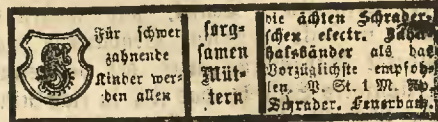 Für schwer
zahnende
Kinder wer-
den allen
sorg-
samen
Müt-
tern
die ächten Schrader-
schen electr. Zahn-
halsbänder als das
Vorzüglichste empfoh-
len. P. St. 1 M.
Schrader, Feuerbach.